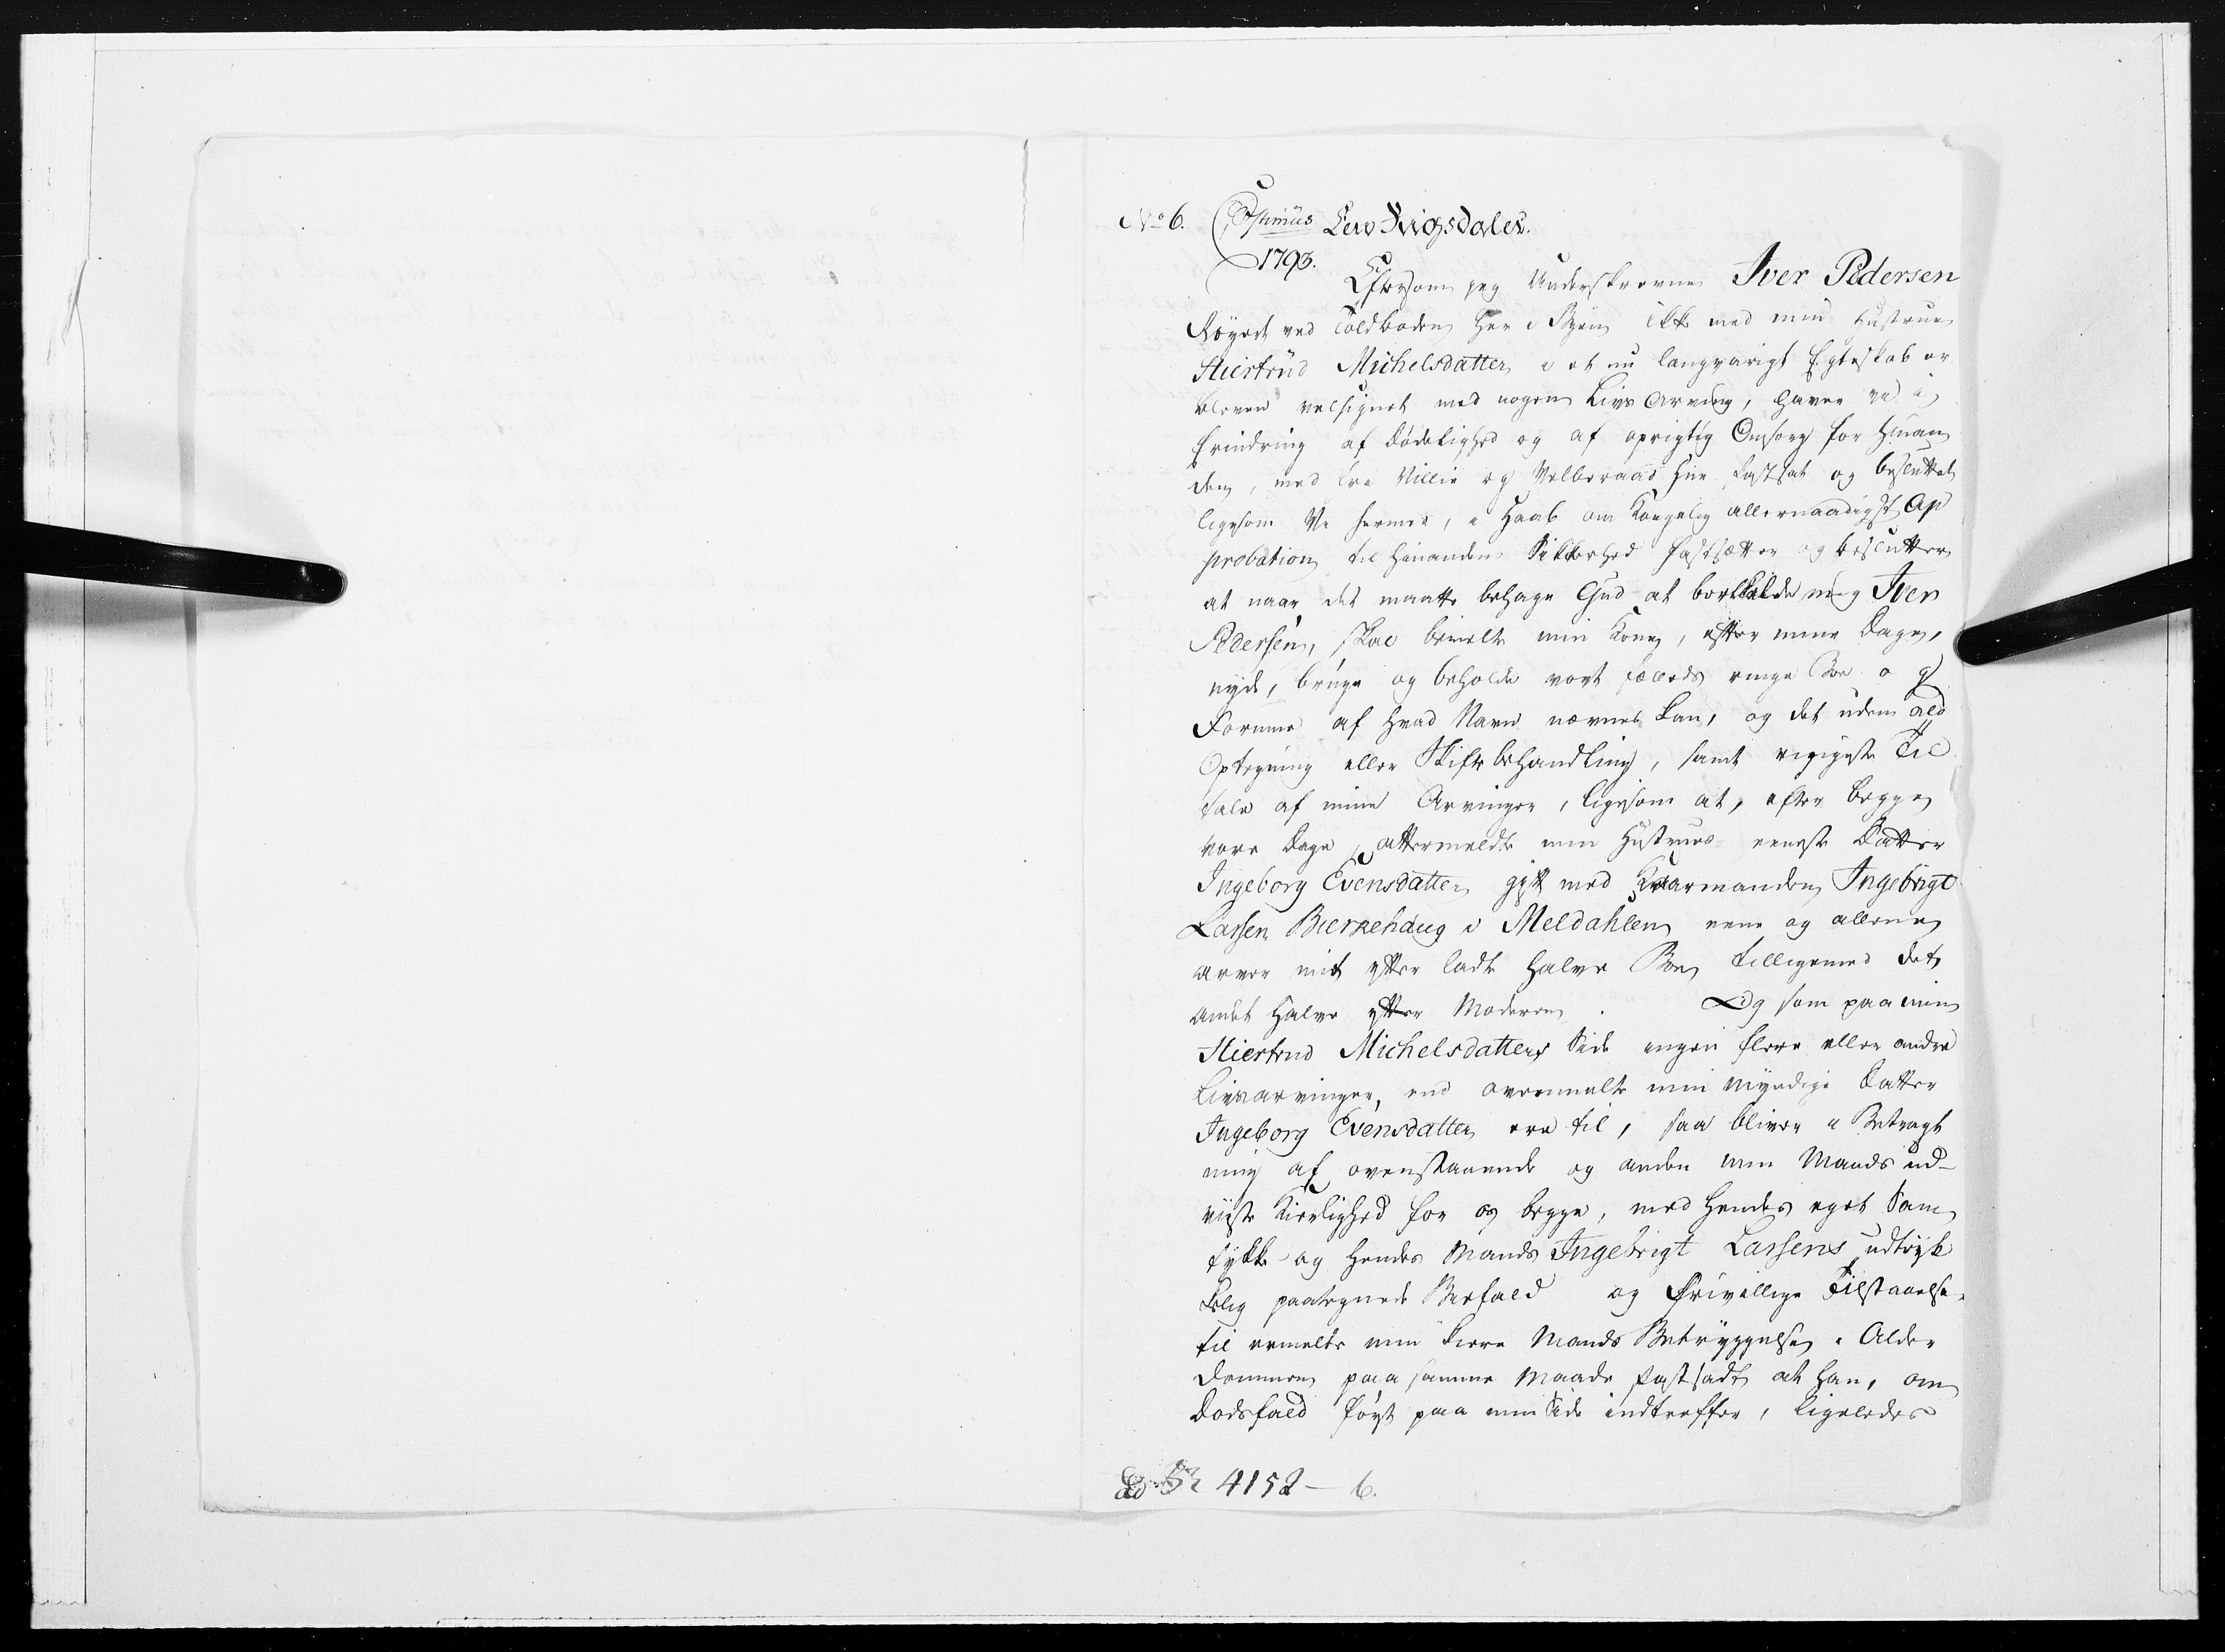 No 6. Optimus Een Rigsdaler.
1793.
Eftersom jeg Underskrevne Iver Pedersen
Røyert ved Toldboden her i Byen ikke med min Hustrue
Stiertrud Michelsdatter i et nu langvarigt Egteskab er
bleven velsignet med nogen Livs Arving, have vi i
Erindring af Dødelighed og af oprigtig Omsorg for hinan
den, med frie Villie og Velberaad Hue fastsat og besluttet
ligesom Vi hermed, i Haab om Kongelig allernaadigst Ap
probation til hinandens Sikkerhed fastsætter og beslutter
at naar det maatte behage Gud at bortkalde mig Iver
Pedersen, skal bemelte min Kone, efter mine Dage,
nyde, bruge og beholde vort fælleds ringe Boe og
Formue af hvad Navn nævnes kan, og det uden ald
Optegning eller Skiftebehandling, samt ringeste Til
tale af mine Arvinger, ligesom at, efter begge
vore Dage, attermeldte min Hustrues eeneste Datter
Ingeborg Evensdatter gift med Qvarmanden Ingebrigt
Larsen Bierkehaug i Meldahlen eene og allene
arver mit efter ladte halve Boe tilligemed det
andet halve efter Moderen. Og som paa min
Stiertrud Michelsdatters Side ingen flere eller andre
Livsarvinger, end ovenmelte min myndige Datter
Ingeborg Evensdatter ere til, saa bliver i Betragt
ning af ovenstaaende og anden min Mands ud-
viiste Kierlighed for os begge, med hendes eget Sam
tykke og hendes Mands Ingebrigt Larsens udtryk
kelig paategnede Biefald og frivillige Tilstaaelse
til ermelte min kiere Mands Betryggelse i Alder
dommen paa samme Maade fastsadt at han, om
Dødsfald først paa min Side indtreffer, ligeledes
ad 4152 - 6.